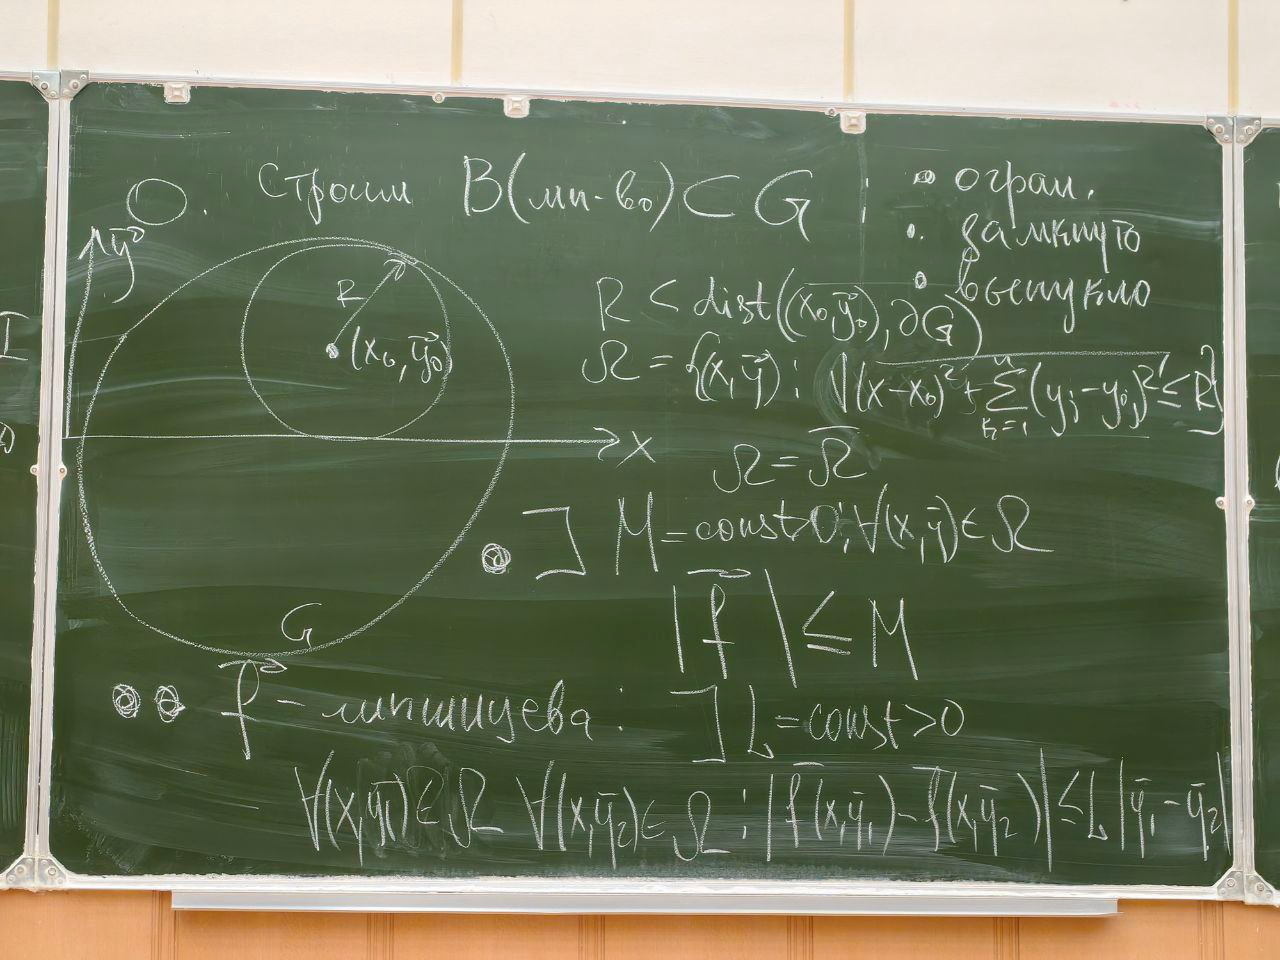 0. Строим B(мн-во) ⊂ G :
• огран.
• замкнуто
• выпукло
y⃗
R
(x₀, y⃗₀)
x
G
R < dist((x₀, y⃗₀), ∂G)
Ω = {(x, y⃗) : √((x-x₀)² + ∑ₖ₌₁ⁿ (yⱼ - y₀ⱼ)²) ≤ R}
Ω = Ω̅
• ∃ M = const > 0 : ∀(x, y⃗) ∈ Ω
|f⃗| ≤ M
•• f⃗ - липшицева : ∃ L = const > 0
∀(x, y̅₁) ∈ Ω ∀(x, y̅₂) ∈ Ω : |f̅(x, y̅₁) - f̅(x, y̅₂)| ≤ L |y̅₁ - y̅₂|